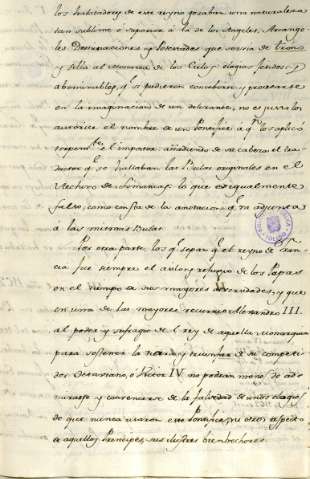 los habitadores de este reyno gozaban una naturaleza
tan sublime o superior á la de los Angeles, Arcange
les Dominaciones y Potestades que servia de trono
y silla al monarca de los Cielos, elogios sordidos y
abominables, q.e si pudieron concebirse y procrearse
en la imaginacion de un delirante, no es justo los
autorice el nombre de un Pontifice á q.n los aplicó
el impostor añadiendo de su cabeza el tra
ductor q.e se hallaban las Bulas originales en el
Archivo de Simancas lo que es igualmente
falso, como consta de la anotacion q.e va adjunta
á las mismas Bulas.
Por otra parte los q.e sepan q.e el reyno de Fran
cia fue siempre el asilo y refugio de los Papas
en el tiempo de sus mayores adversidades, y que
en una de las mayores recurrió Alexandro III.
al poder y sufragio del rey de aquella monarquia
para sostener la y triunfar de su competi
dor Octaviano, o Victor IV. no podran menos de ado
y convencerse de la falsedad de unos elogios
de que nunca usaron esos Pontifices, ni otros respecto
de aquellos Principes, sus ilustres bienhechores.